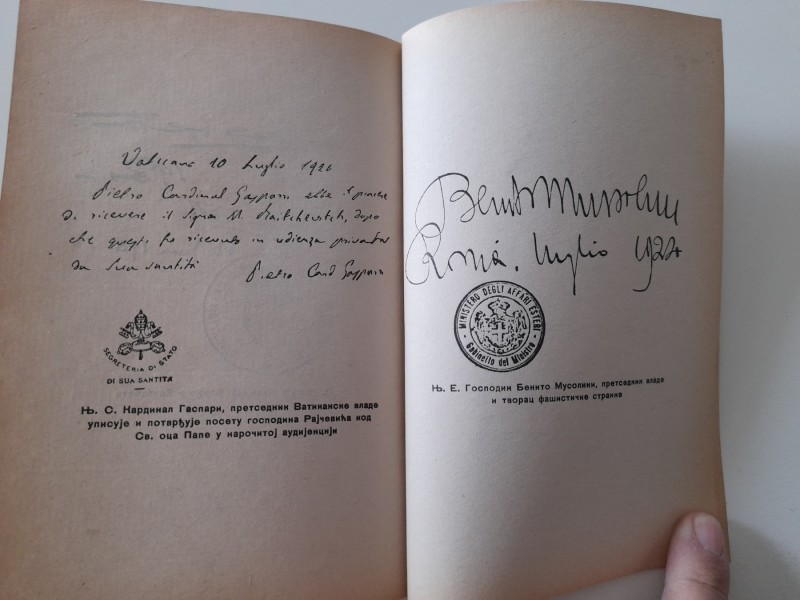 Vaticano 10 Luglio 1924
Pietro Cardinal Gasparri ebbe il piacere
di ricevere il Signor M. Raitchevitch, dopo
che questi fu ricevuto in udienza privata
da Sua Santità
Pietro Card Gasparri
SEGRETERIA DI STATO
DI SUA SANTITÀ
Њ. С. Нардинал Гаспари, претседник Ватиканске владе
уписује и потврђује посету господина Рајчевића код
Св. оца Папе у нарочитој аудијенцији
Benito Mussolini
Roma, luglio 1924
MINISTERO DEGLI AFFARI ESTERI
Gabinetto del Ministro
Њ. Е. Господин Бенито Мусолини, претседник владе
и творац фашистичке странке